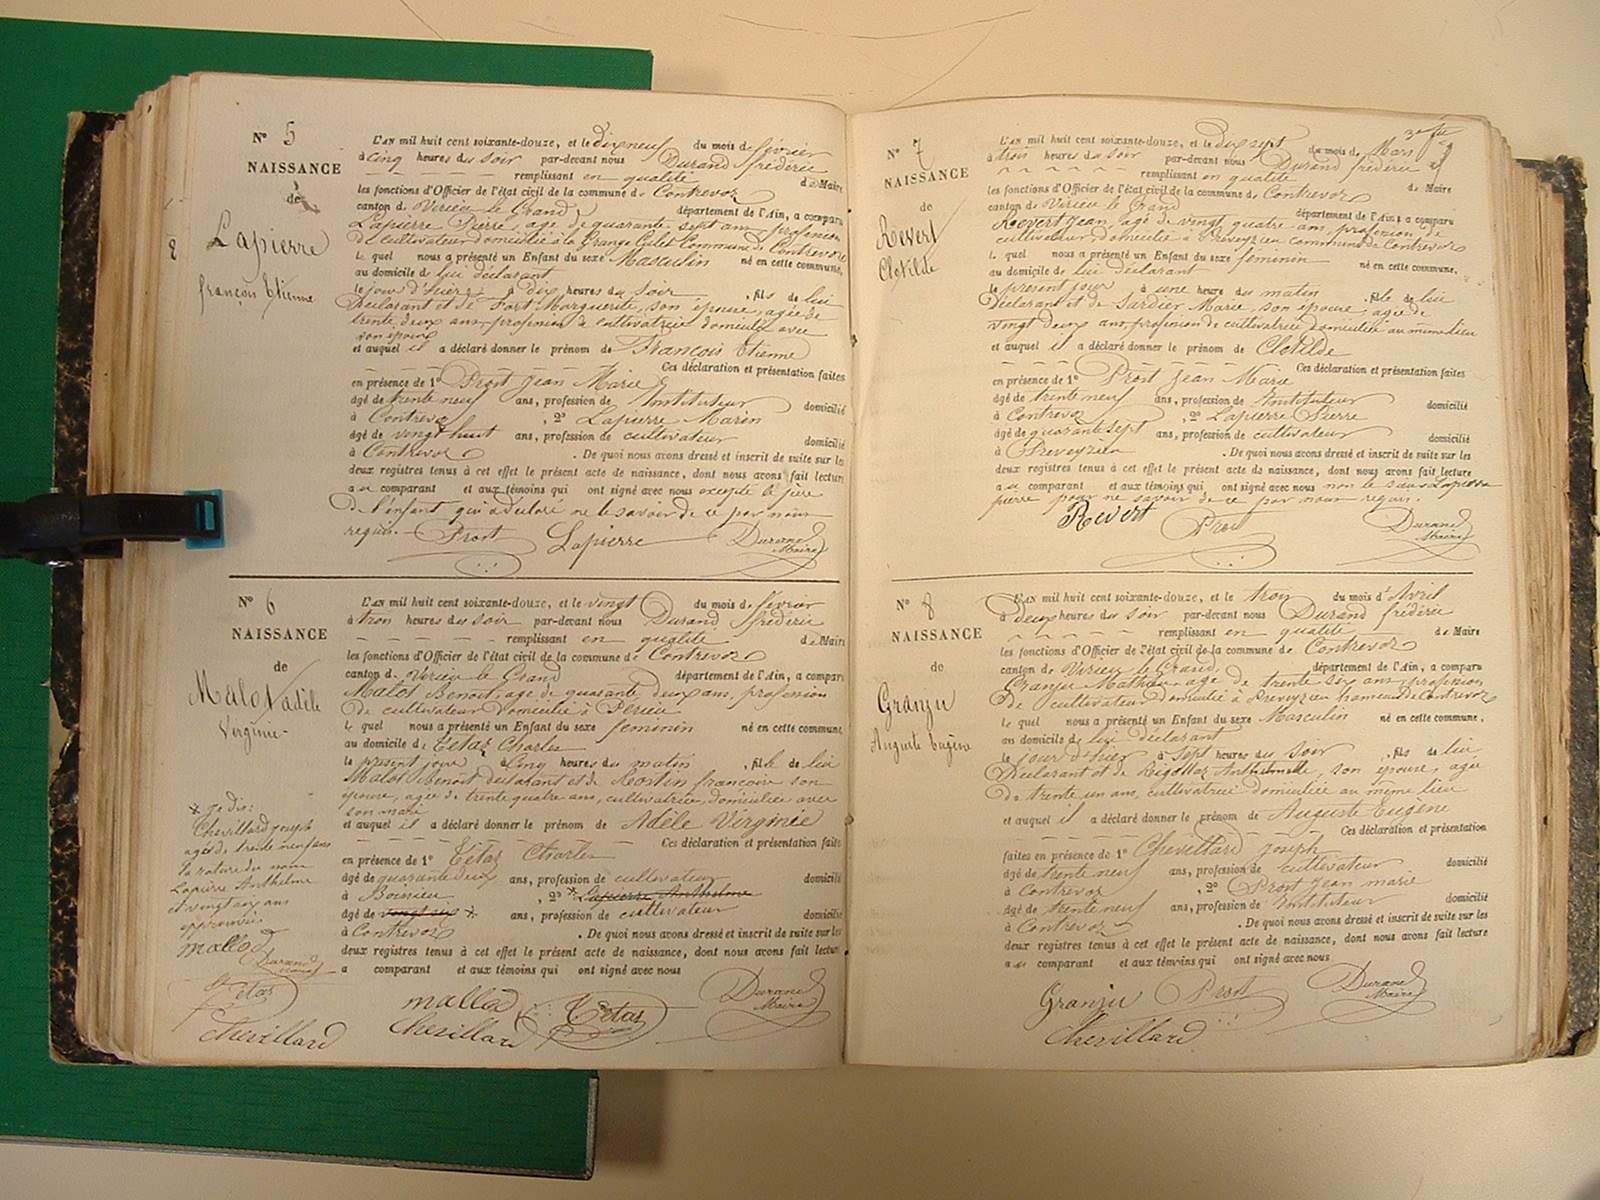 N° 5
NAISSANCE
de
Lapierre
françois Etienne
L'AN mil huit cent soixante-douze, et le dix neuf du mois de février
à cinq heures du soir par-devant nous Durand frédéric
remplissant en qualité de Maire
les fonctions d'Officier de l'état civil de la commune de Contrevoz
canton de Virieu le Grand département de l'Ain, a comparu
Lapierre Pierre, age de quarante sept ans, profession
de cultivateur domicilié à la Grange Commune de Contrevoz
le quel nous a présenté un Enfant du sexe Masculin né en cette commune,
au domicile de lui déclarant
le jour d'hier à dix heures du soir , fils de lui
Déclarant et de Fort Marguerite, son épouse, agée de
trente deux ans, profession de cultivatrice domiciliée avec
son époux
et auquel il a déclaré donner le prénom de François Etienne
Ces déclaration et présentation faites
en présence de 1° Prost Jean Marie
âgé de trente neuf ans, profession de Instituteur domicilié
à Contrevoz , 2° Lapierre Marin
âgé de vingt huit ans, profession de cultivateur domicilié
à Contrevoz . De quoi nous avons dressé et inscrit de suite sur les
deux registres tenus à cet effet le présent acte de naissance, dont nous avons fait lecture
au comparant et aux témoins qui ont signé avec nous excepté le père
de l'enfant qui a déclaré ne le savoir de ce par nous
requis. Prost Lapierre Durand
Maire
N° 6
NAISSANCE
de
Malod adèle
Virginie
L'AN mil huit cent soixante-douze, et le vingt du mois de février
à trois heures du soir par-devant nous Durand frédéric
remplissant en qualité de Maire
les fonctions d'Officier de l'état civil de la commune de Contrevoz
canton de Virieu le Grand département de l'Ain, a comparu
Malod Benoit, age de quarante deux ans, profession
de cultivateur domicilié à
le quel nous a présenté un Enfant du sexe feminin né en cette commune,
au domicile de Tétaz Charles
le présent jour à cinq heures du matin , fille de lui
Malod Benoit déclarant et de françoise son
épouse, agée de trente quatre ans, cultivatrice, domiciliée avec
son mari
et auquel il a déclaré donner le prénom de Adèle Virginie
Ces déclaration et présentation faites
en présence de 1° Tétaz Charles
âgé de quarante deux ans, profession de cultivateur domicilié
à Boissieu , 2° * Lapierre Anthelme
âgé de vingt six * ans, profession de cultivateur domicilié
à Contrevoz . De quoi nous avons dressé et inscrit de suite sur les
deux registres tenus à cet effet le présent acte de naissance, dont nous avons fait lecture
a comparant et aux témoins qui ont signé avec nous
mallod Tetaz Durand
Maire
chevillard
* je dis:
Chevillard joseph
agé de trente neuf ans
la rature du nom
Lapierre Anthelme
et vingt six ans
approuvée
mallod
Durand
Maire
Tetaz
chevillard
N° 7
NAISSANCE
de
Revert
Clotilde
3e
L'AN mil huit cent soixante-douze, et le dix sept du mois de Mars
à trois heures du soir par-devant nous Durand frédéric
remplissant en qualité de Maire
les fonctions d'Officier de l'état civil de la commune de Contrevoz
canton de Virieu le Grand département de l'Ain, a comparu
Revert Jean, agé de vingt quatre ans, profession de
cultivateur, domicilié à Preveyzieu commune de Contrevoz
le quel nous a présenté un Enfant du sexe feminin né en cette commune,
au domicile de lui déclarant
le présent jour à une heure du matin , fille de lui
Déclarant et de Surdier Marie, son épouse, agée de
vingt deux ans, profession de cultivatrice domiciliée au même lieu
et auquel il a déclaré donner le prénom de Clotilde
Ces déclaration et présentation faites
en présence de 1° Prost Jean Marie
âgé de trente neuf ans, profession de Instituteur domicilié
à Contrevoz , 2° Lapierre Pierre
âgé de quarante sept ans, profession de cultivateur domicilié
à Preveyzieu . De quoi nous avons dressé et inscrit de suite sur les
deux registres tenus à cet effet le présent acte de naissance, dont nous avons fait lecture
au comparant et aux témoins qui ont signé avec nous non le sieur Lapierre
pierre pour ne savoir de ce par nous requis.
Revert Prost Durand
Maire
N° 8
NAISSANCE
de
Granju
Auguste Eugène
L'AN mil huit cent soixante-douze, et le trois du mois d'Avril
à deux heures du soir par-devant nous Durand frédéric
remplissant en qualité de Maire
les fonctions d'Officier de l'état civil de la commune de Contrevoz
canton de Virieu le Grand département de l'Ain, a comparu
Granju Mathieu age de trente six ans, profession
de cultivateur domicilié à Preveyzieu hameau de Contrevoz
le quel nous a présenté un Enfant du sexe Masculin né en cette commune,
au domicile de lui déclarant
le jour d'hier à sept heures du soir , fils de lui
Déclarant et de Rigollet Anthelmette, son épouse, agée
de trente un ans, cultivatrice domiciliée au même lieu
et auquel il a déclaré donner le prénom de Auguste Eugène
Ces déclaration et présentation
faites en présence de 1° Chevillard joseph
âgé de trente neuf ans, profession de cultivateur domicilié
à Contrevoz , 2° Prost Jean marie
âgé de trente neuf ans, profession de Instituteur domicilié
à Contrevoz . De quoi nous avons dressé et inscrit de suite sur les
deux registres tenus à cet effet le présent acte de naissance, dont nous avons fait lecture
au comparant et aux témoins qui ont signé avec nous
Granju Prost Durand
Maire
Chevillard